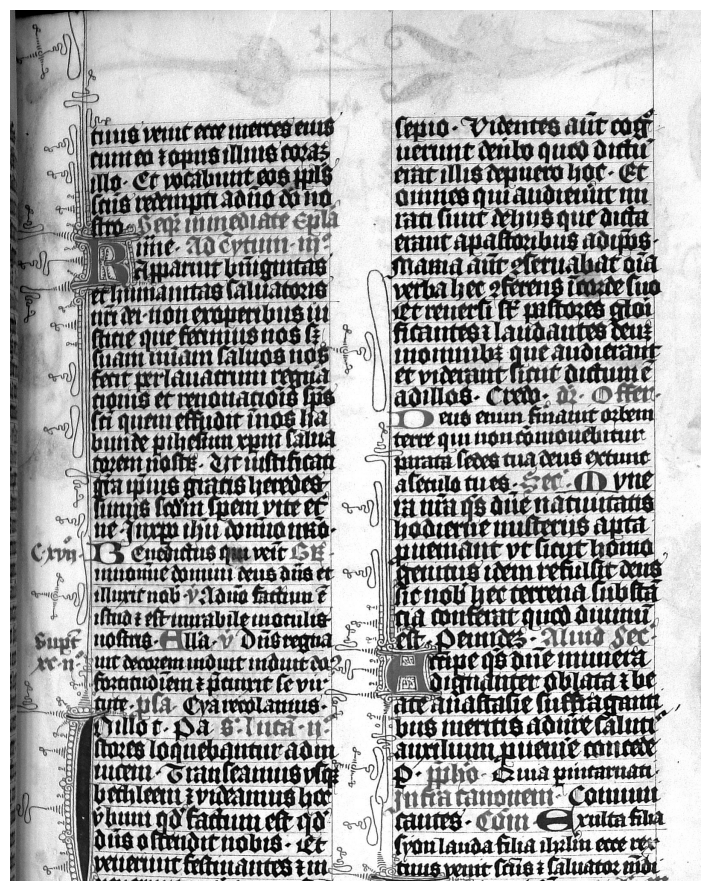 tuus venit ecce merces eius
cum eo ⁊ opus illius coraʒ
illo. Et vocabunt eos ppl̄s
sc̄us redempti a dn̄o dō no
stro. Seqr̄ immediate Epl̄a
ime. Ad tytum. iij
R Apparuit bn̄ignitas
et humanitas saluatoris
nri dei. non ex operibus iu
sticie que fecimus nos sꝫ
suam miam̄ saluos nos
fecit per lauacrum regn̄a
tionis et renouatiōis sp̄s
sc̄i quem effudit ī nos ha
bunde p ih̄esum xp̄m salua
torem nostrꝫ. Ut iustificati
gr̄a ipius gratis heredes
simus scd̄m spem vite et̄
ne. In xp̄o ih̄u domīo nr̄o.
C xvij. Benedictus qui venit Gr̄.
in nomīe domini deus dn̄s et
illuxit nob. v̄. A dn̄o factum ē
istud ⁊ est mirabile ī oculis
Supͣ nostris. Alla. v̄ Dn̄s regna
xc. ij. uit decorem induit induit do
fortitudīem ⁊ p̄cinxit se vir
tute. pͣsa Eya recolamus.
In illo t. Pa s. Lucā. ij.
stores loquebantur ad in
uicem. Transeamus vsqꝫ
bethleem ⁊ videamus hoc
v̄bum qd̄ factum est qd̄
dn̄s ostendit nobis. Et
venerunt festinantes ⁊ in
sepio. Videntes aūt cogͦ
uerunt de v̄bo quod dictū
erat illis de puero hoc. Et
omnes qui audierunt mi
rati sunt de hiis que dicta
erant a pastoribus ad ip̄os.
Maria aūt ꝯseruabat oīa
verba hec ꝯferens ī corde suo
Et reuersi sꝫ pastores glōi
ficantes ⁊ laudantes deuꝫ
in omnibꝫ que audierant
et viderant sicut dictum ē
ad illos. Credo. Offer.
Deus enim firmauit orbem
terre qui non cōmouebitur
parata sedes tua deus ex tunc
a seculo tu es. Sec. Mune
ra nr̄a qs̄ dn̄e natiuitatis
hodierne misteriis apta
proueniant vt sicut homo
genitus idem refulsit deus
sic nob̄ hec terrena substā
cia conferat quod diuinū
est. Per eundeꝫ. Aliud Sec.
Accipe qs̄ dn̄e munera
dignanter oblata ⁊ be
ate anastasie suffragant̄
bus meritis ad nr̄e salutis
auxilium prouenire concede
P. pͬpho. Quia p incarnati.
Infra canonem. Commu
cantes. Com̄ Exulta filia
syon lauda filia ih̄rlm ecce rex
tuus venit sc̄us ⁊ saluator mūdi